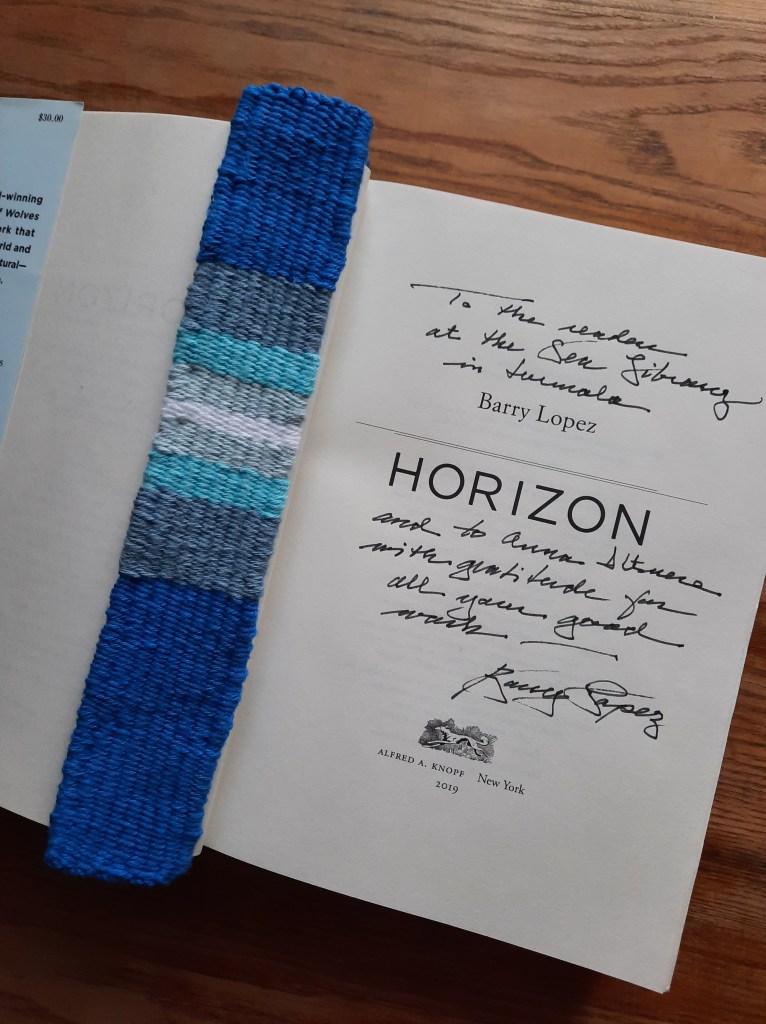 $30.00
-winning
f Wolves
ark that
rld and
tural—
To the readers
at the Sea Library
in Jurmala
Barry Lopez
HORIZON
and to Anna
with gratitude for
all your good
work —
Barry Lopez
ALFRED A. KNOPF New York
2019